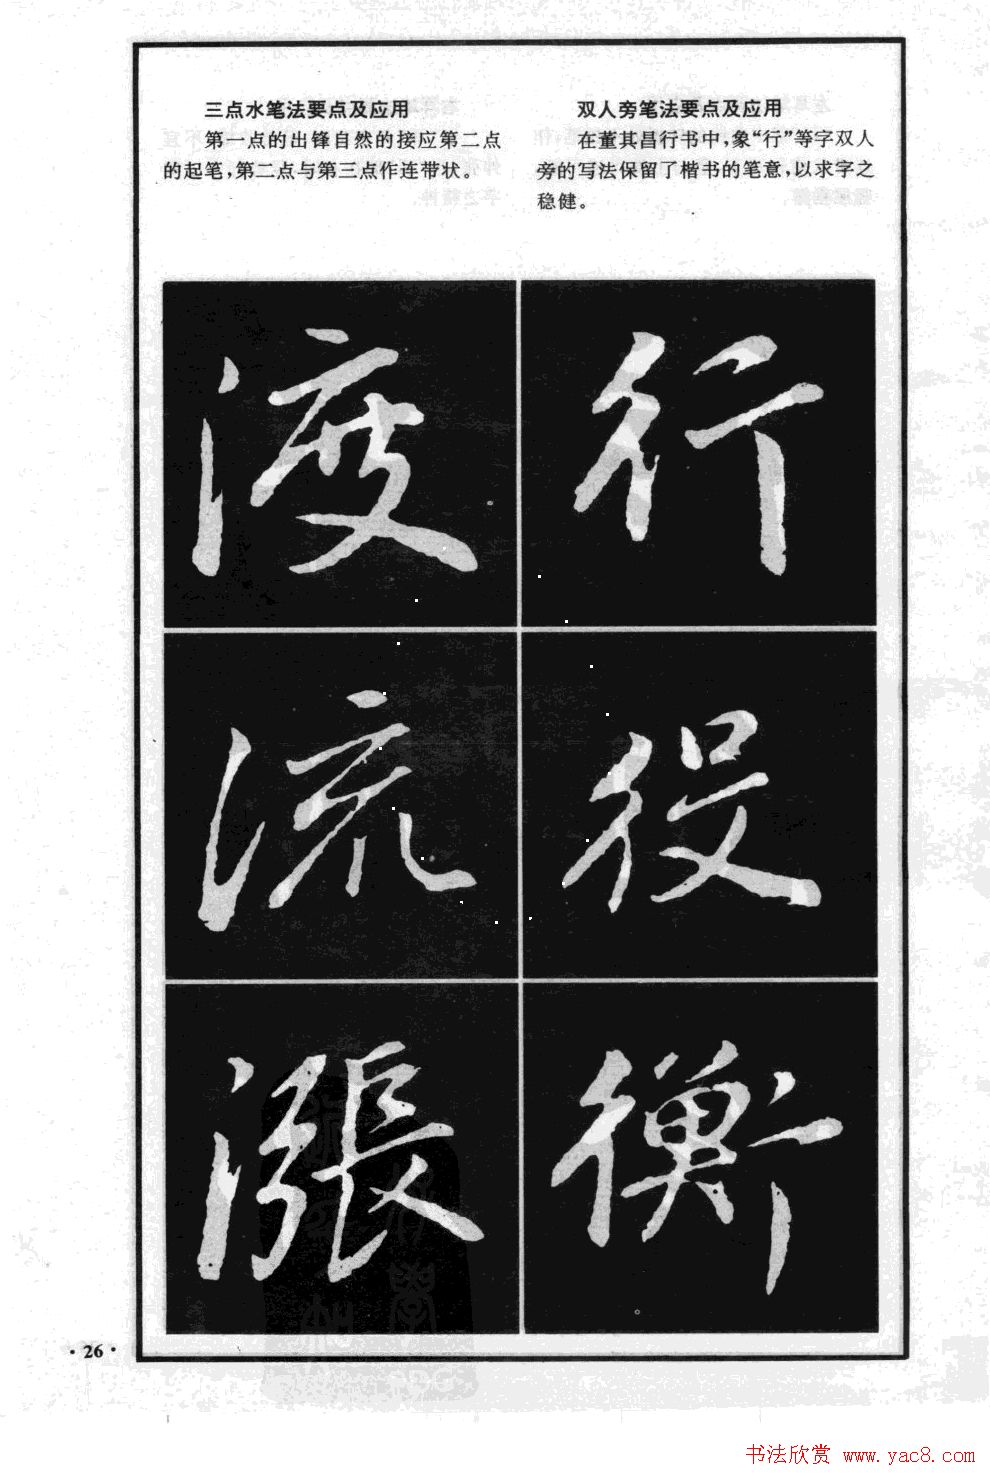 三点水笔法要点及应用
第一点的出锋自然的接应第二点
的起笔,第二点与第三点作连带状。
双人旁笔法要点及应用
在董其昌行书中,象“行”等字双人
旁的写法保留了楷书的笔意,以求字之
稳健。
渡
行
流
役
漲
衡
·26·
书法欣赏 www.yac8.com